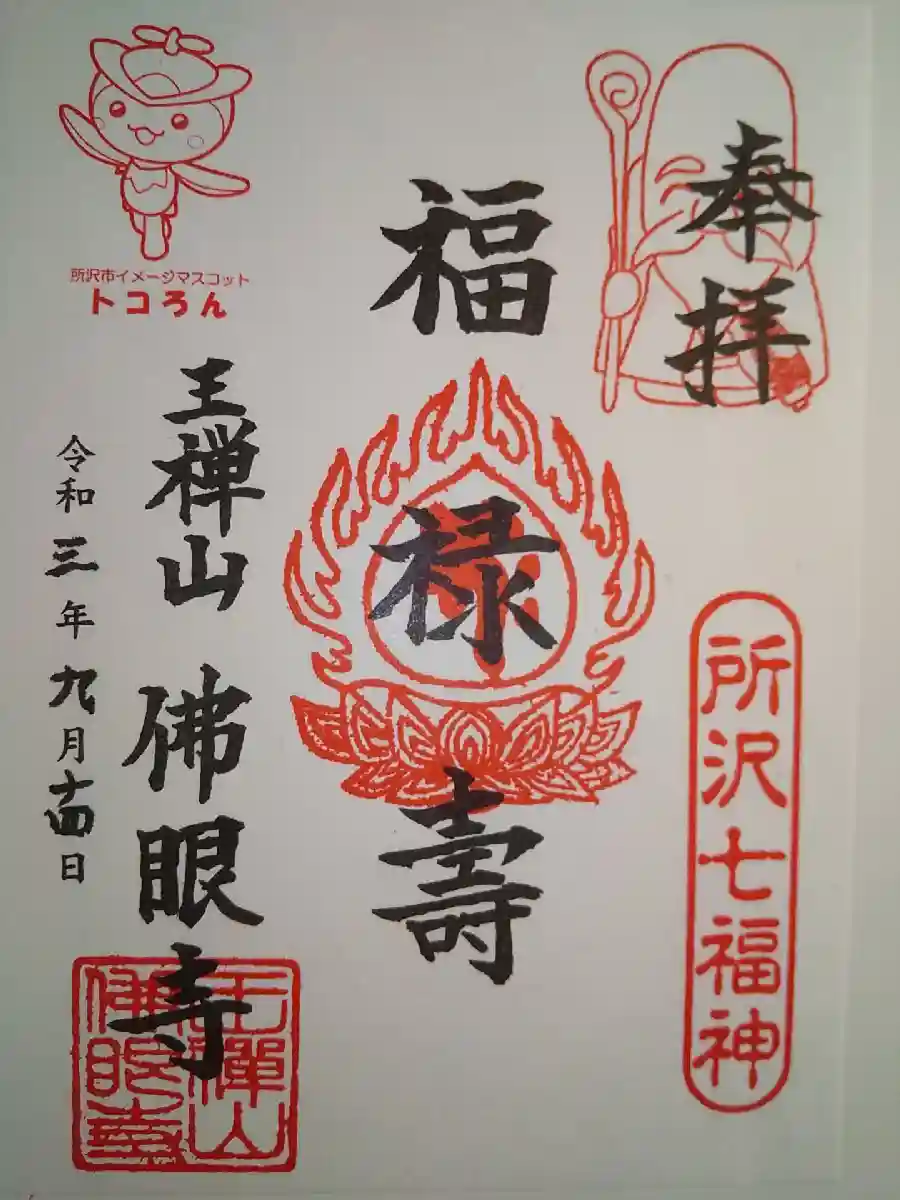 奉拝
所沢七福神
福禄壽
王禅山 佛眼寺
令和三年九月十四日
所沢市イメージマスコット
トコろん
王禅山
佛眼寺